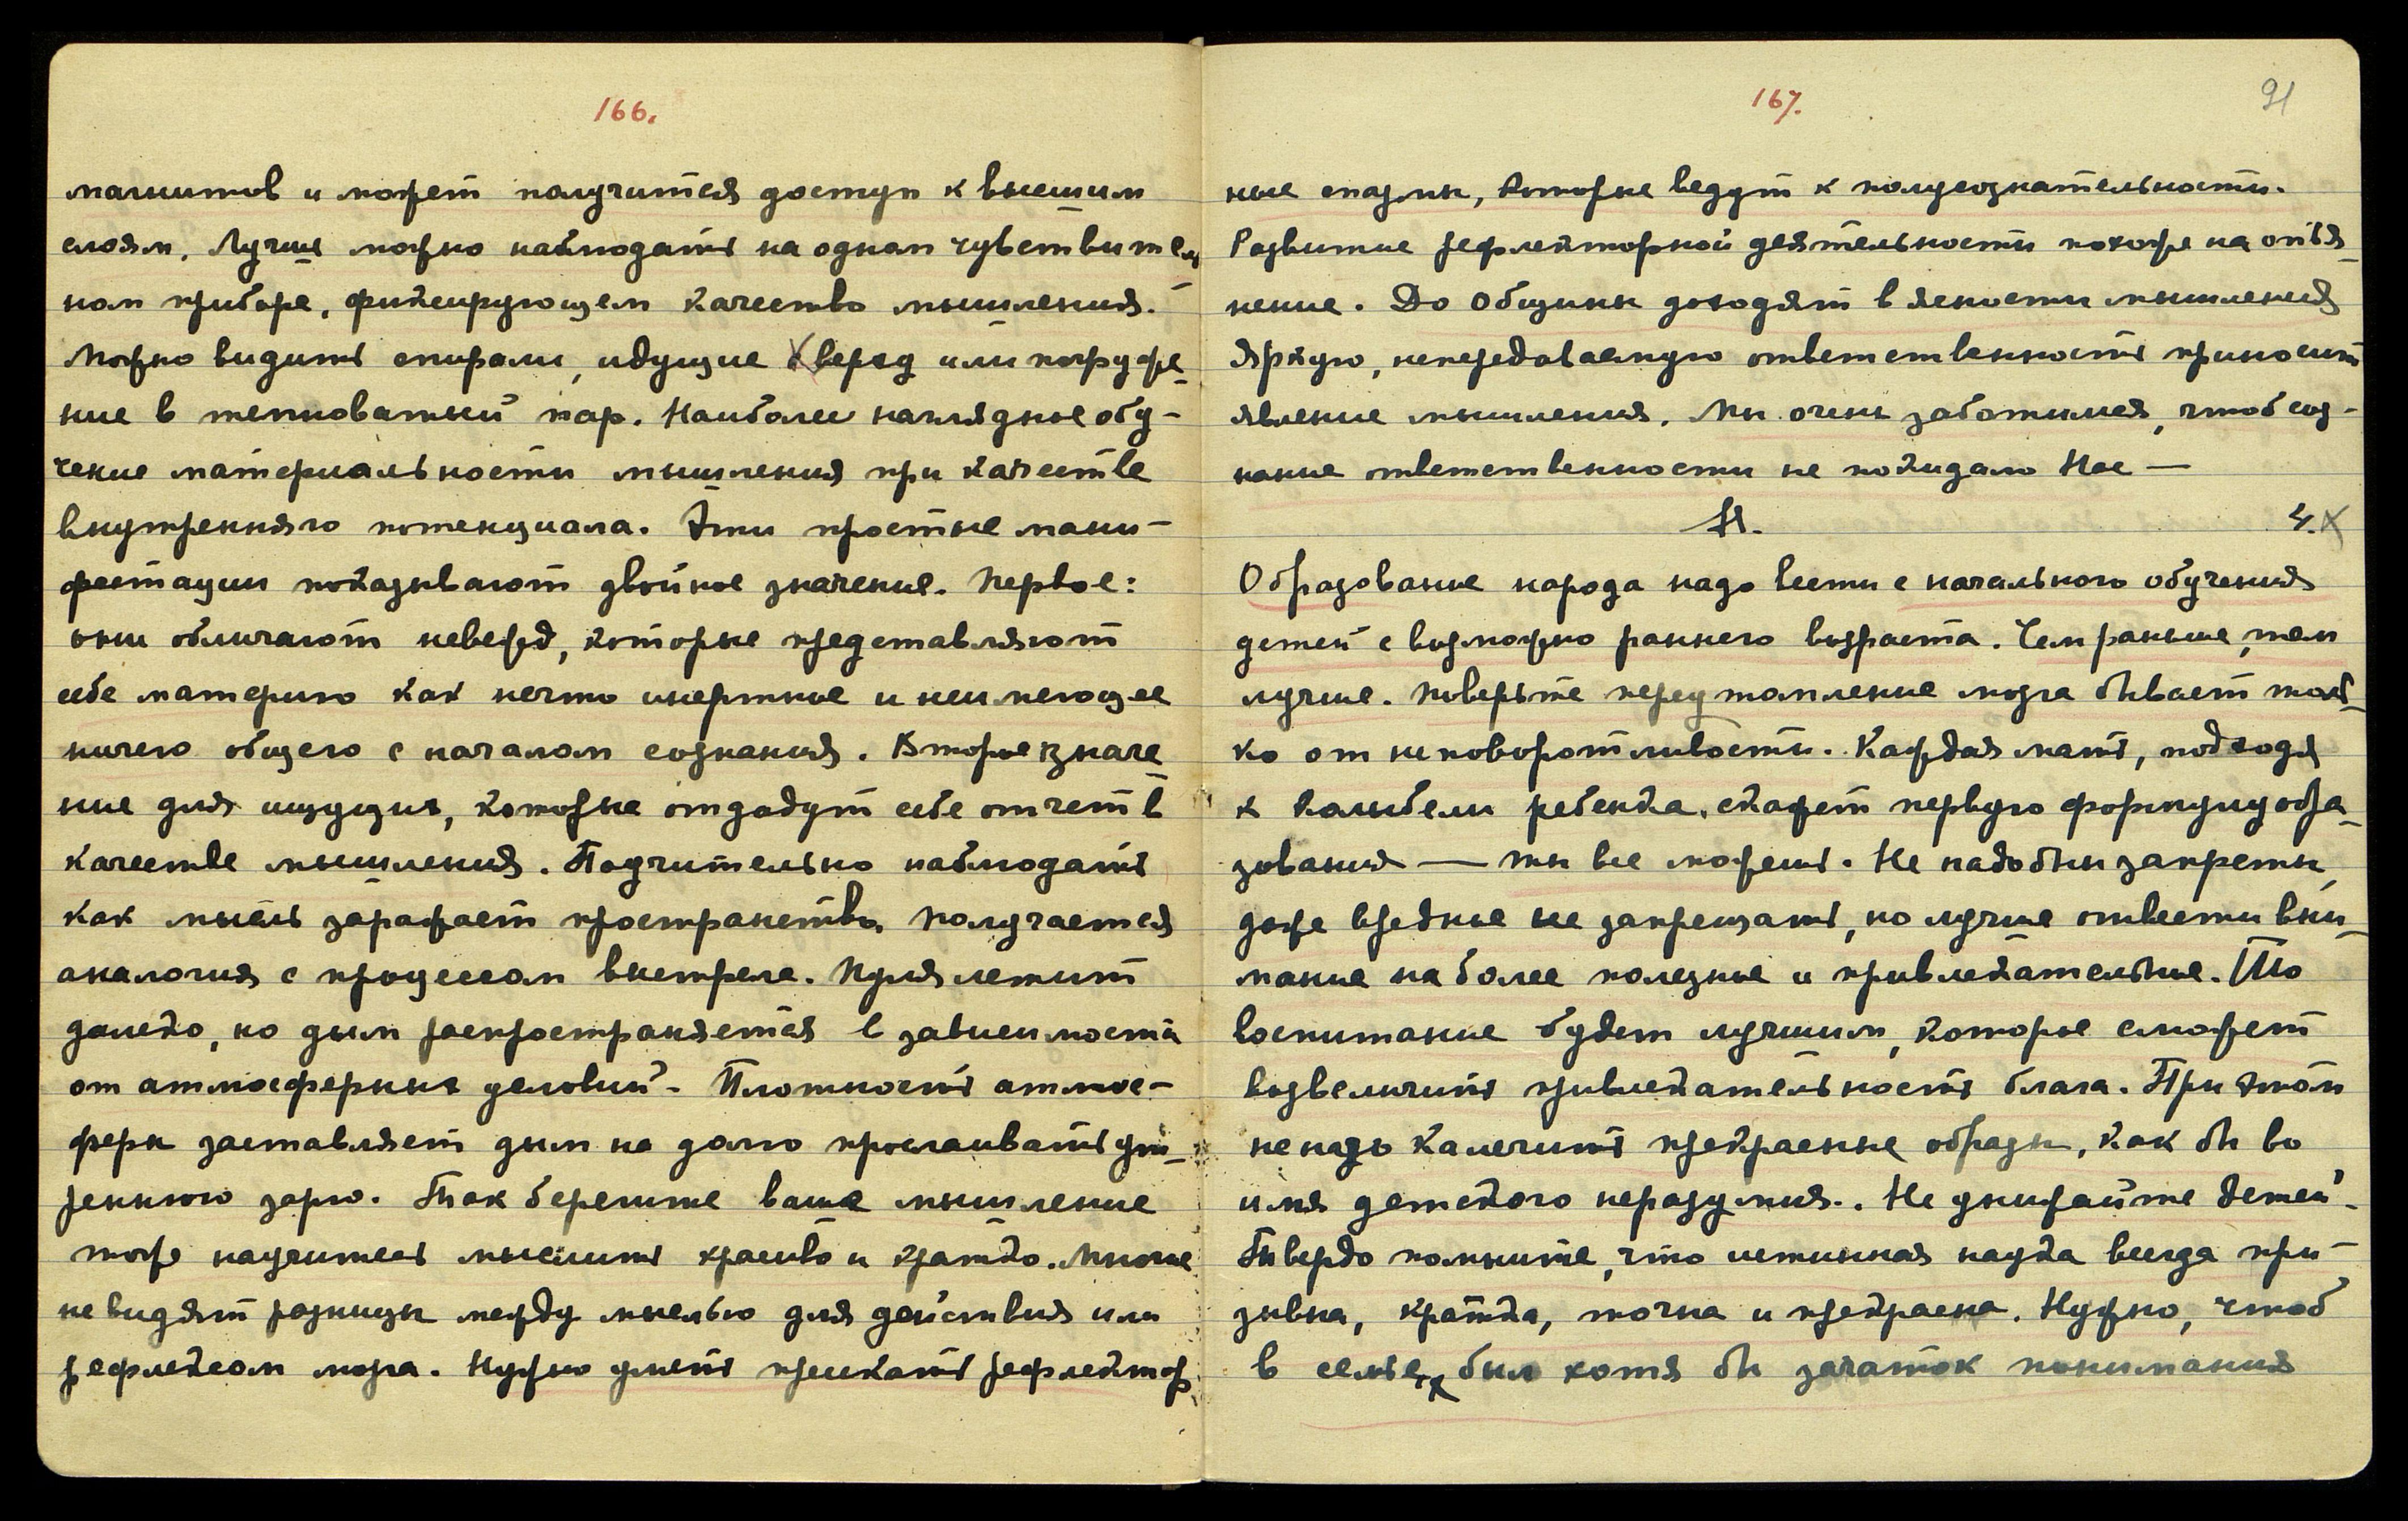 166.
магнитов и может получиться доступ к высшим
слоям. Лучше можно наблюдать на одном чувствитель
ном приборе, фиксирующем качество мышления.
Можно видить спирали, идущие кверху или погруже_
ние в тепловатый пар. Наиболее наглядное обу-
чение материальности мышления при качестве
внутренняго потенциала. Эти простые мани-
фестации показывают двойное значение. Первое:
они обличают невежд, которые представляют
себе материю как нечто инертное и неимеющее
ничего общего с началом сознания. Второе значе_
ние для ищущих, которые отдадут себе отчет в
качестве мышления. Поучительно наблюдать
как мысль заражает пространство, получается
аналогия с процессом выстрела. Пуля летит
далеко, но дым распространяется в зависимости
от атмосферных условий. Плотность атмос-
феры заставляет дым на долго прослаивать ут_
реннюю зарю. Так берегите ваше мышление
тоже научитесь мыслить красиво и кратко. Многие
не видят разницы между мыслью для действия или
рефлексом мозга. Нужно уметь пресекать рефлектор
167.
91
ные спазмы, которые ведут к полусознательности.
Развитие рефлекторной деятельности похоже на опья_
нение. До Общины доходят в ясности мышления
яркую, непередаваемую ответственность приносит
явление мышления. Мы очень заботимся, чтоб соз-
нание ответственности не покидало Нас —
Я. 4. X
Образование народа надо вести с начального обучения
детей с возможно раннего возраста. Чем раньше, тем
лучше. Поверьте переутомление мозга бывает толь_
ко от неповоротливости. Каждая мать, подходя
к колыбели ребенка, скажет первую формулу обра_
зования — ты все можешь. Не надобны запреты,
даже вредное не запрещать, но лучше отвести вни_
мание на более полезное и привлекательное. То
воспитание будет лучшим, которое сможет
возвеличить привлекательность блага. При этом
не надо калечить прекрасные образы, как бы во
имя детского неразумия.. Не унижайте детей.
Твердо помните, что истинная наука всегда при-
зывна, кратка, точна и прекрасна. Нужно, чтоб
в семье, был хотя бы зачаток понимания